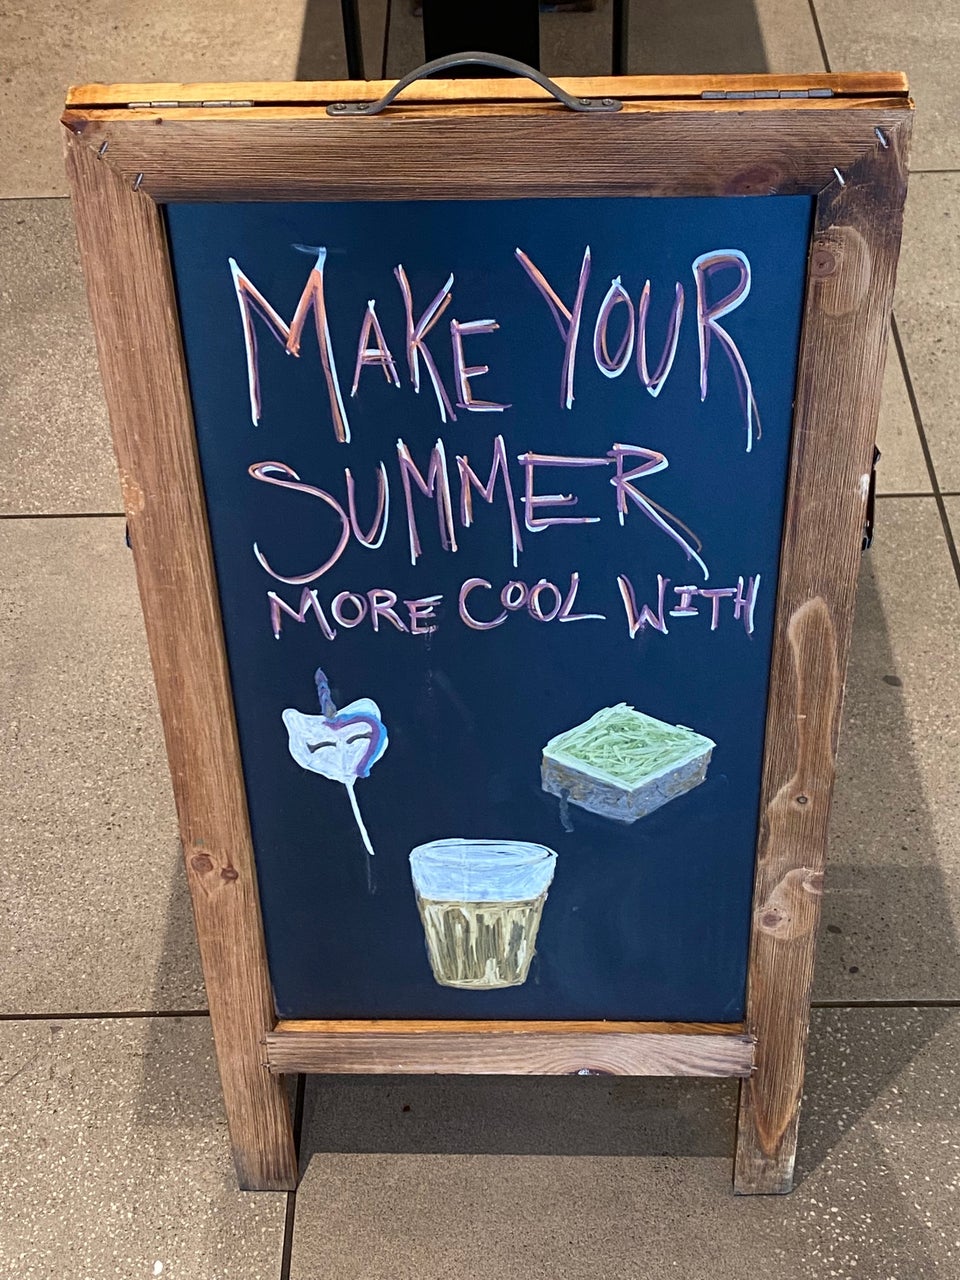 MAKE YOUR
SUMMER
MORE COOL WITH